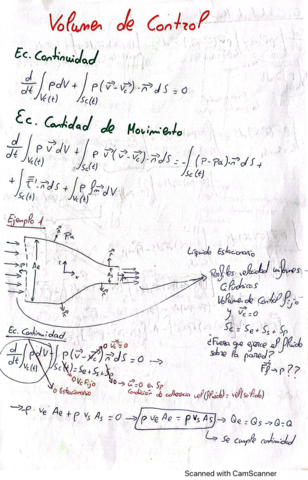 Volumen de Control
Ec. Continuidad
d/dt ∫_{Vc(t)} ρ dV + ∫_{Sc(t)} ρ (v⃗ - v⃗c) · n⃗ dS = 0
Ec. Cantidad de Movimiento
d/dt ∫_{Vc(t)} ρ v⃗ dV + ∫_{Sc(t)} ρ v⃗ (v⃗ - v⃗c) · n⃗ dS = - ∫_{Sc(t)} (P - Pa) n⃗ dS +
+ ∫_{Sc(t)} τ̿' · n⃗ dS + ∫_{Vc(t)} ρ f⃗m dV
Ejemplo 1
Pa
Ae
Líquido Estacionario
Perfiles velocidad uniformes
Cilíndricos
Volumen de Control fijo
y v⃗c = 0
Sc = Se + Ss + Sp
¿Fuerza que ejerce el fluido
sobre la pared?
Ec. Continuidad
d/dt ∫_{Vc(t)} ρ dV + ∫_{Sc(t) = Se + Ss + Sp} ρ (v⃗ - v⃗c) n⃗ dS = 0 →
0 v⃗c = 0
0 Vc Fijo
0 Estacionario
→ 0 → v⃗ = 0 en Sp
Condición de adherencia vel(fluido) = vel(sólido)
→ -ρ ve Ae + ρ vs As = 0 → ρ ve Ae = ρ vs As → Qe = Qs → Q = Q
→ Se cumple continuidad
Scanned with CamScanner